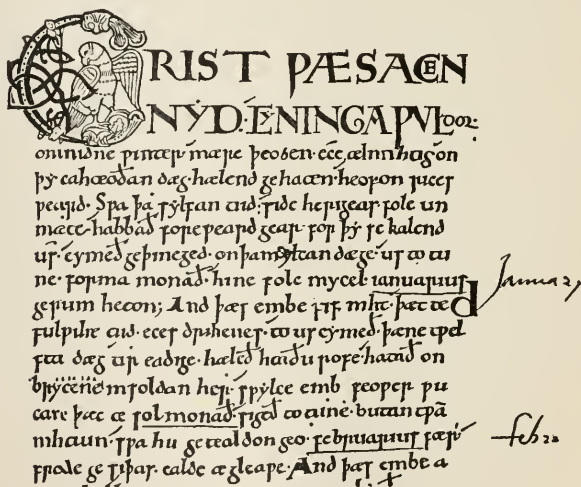 CRIST ǷÆS ACEN
NYD. CYNINGA ǷULdor·
onmidne ƿinter mære þeoden· ece ælmihtig· on
þy eahteoðan dæg· hælend gehaten· heofon rices
ƿeard· Sƿa þa sylfan tiid· side herigeas folc un
mæte· habbað foreƿeard gear· for þy se kalend
us· cymeð geþincged· onþamylcan dæge· us to tu
ne· forma monað· hine folc mycel ianuarius
gerum heton; And þæs embe fif niht· þæt te
fulƿiht tiid· eces drihtnes· to us cymeð· þæne tƿel
fta dæg tir eadige· hæleð heaðu rofe· hatað on
brytene in foldan her· sƿylce emb feoƿer ƿu
can þæt te solmonað sigeð to tune· butan tƿam
nihtum· sƿa hit getealdon geo· februarius fær·
frode ge siþas· ealde ægleaƿe· And þæs embe a
January
feb